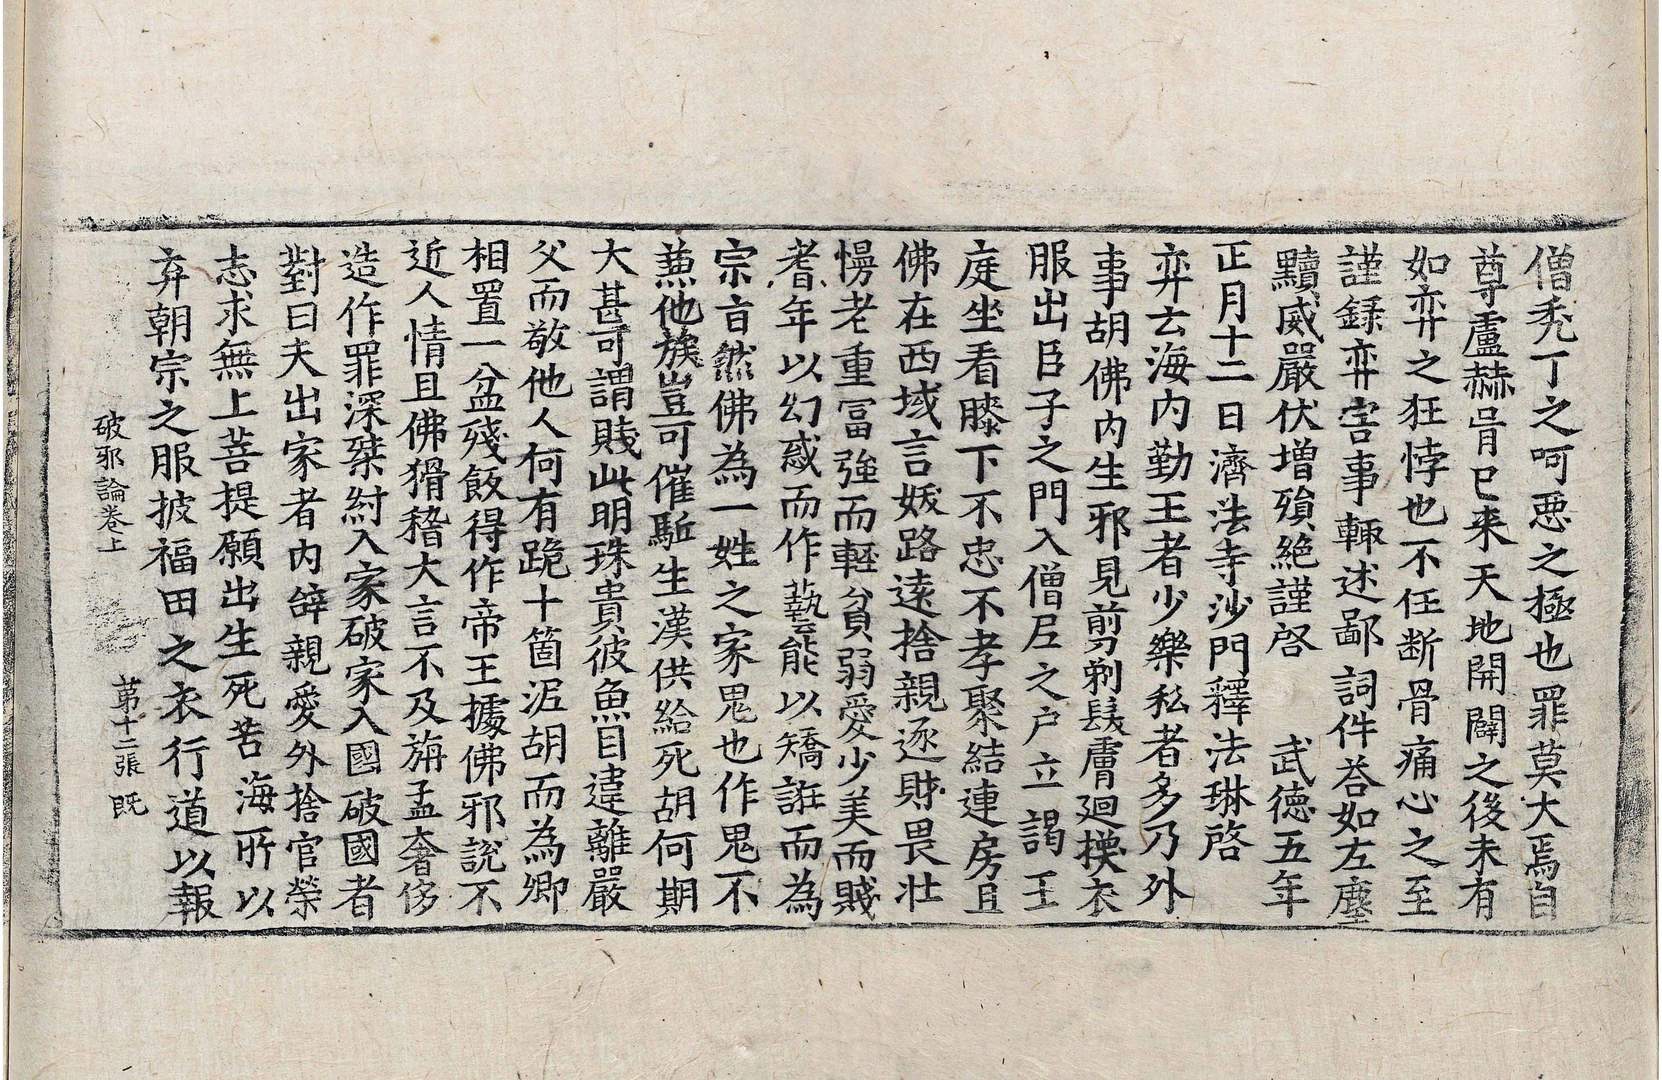 僧禿丁之呵惡之極也罪莫大焉自
尊盧赫胥已来天地開闢之後未有
如弈之狂悖也不任断骨痛心之至
謹録弈害事輙述鄙詞件荅如左塵
黷威嚴伏增殞絶謹啓 武德五年
正月十二日濟法寺沙門釋法琳啓
弈云海内勤王者少樂私者多乃外
事胡佛内生邪見剪剃髮膚迴換衣
服出臣子之門入僧尼之户立謁王
庭坐看膝下不忠不孝聚結連房且
佛在西域言妖路遠捨親逐財畏壮
慢老重冨強而輕貧弱愛少美而賤
耆年以幻惑而作藝能以矯誑而為
宗旨然佛為一姓之家鬼也作鬼不
兼他族豈可催駈生漢供給死胡何期
大甚可謂賎此明珠貴彼魚目違離嚴
父而敬他人何有跪十箇泥胡而為卿
相置一盆殘飯得作帝王據佛邪說不
近人情且佛猾稽大言不及旃孟奢侈
造作罪深桀紂入家破家入國破國者
對曰夫出家者内辝親愛外捨官榮
志求無上菩提願出生死苦海所以
弃朝宗之服披福田之衣行道以報
破邪論卷上 苐十二張 既